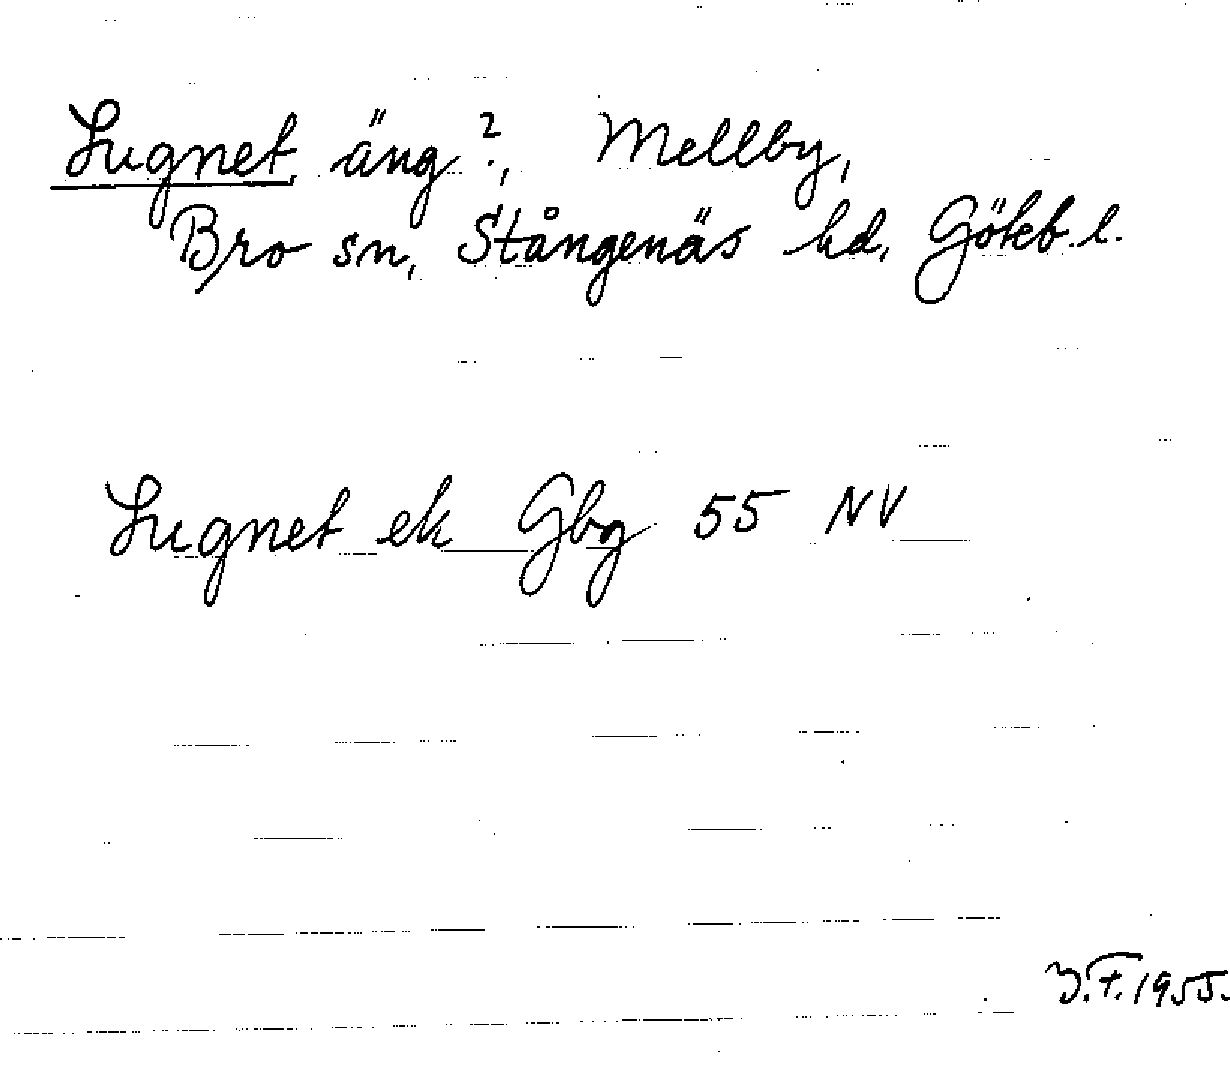 Lugnet, äng?, Mellby,
Bro sn, Stångenäs hd, Göteb. l.
Lugnet ek Gbg 55 NV
J.F. 1955.